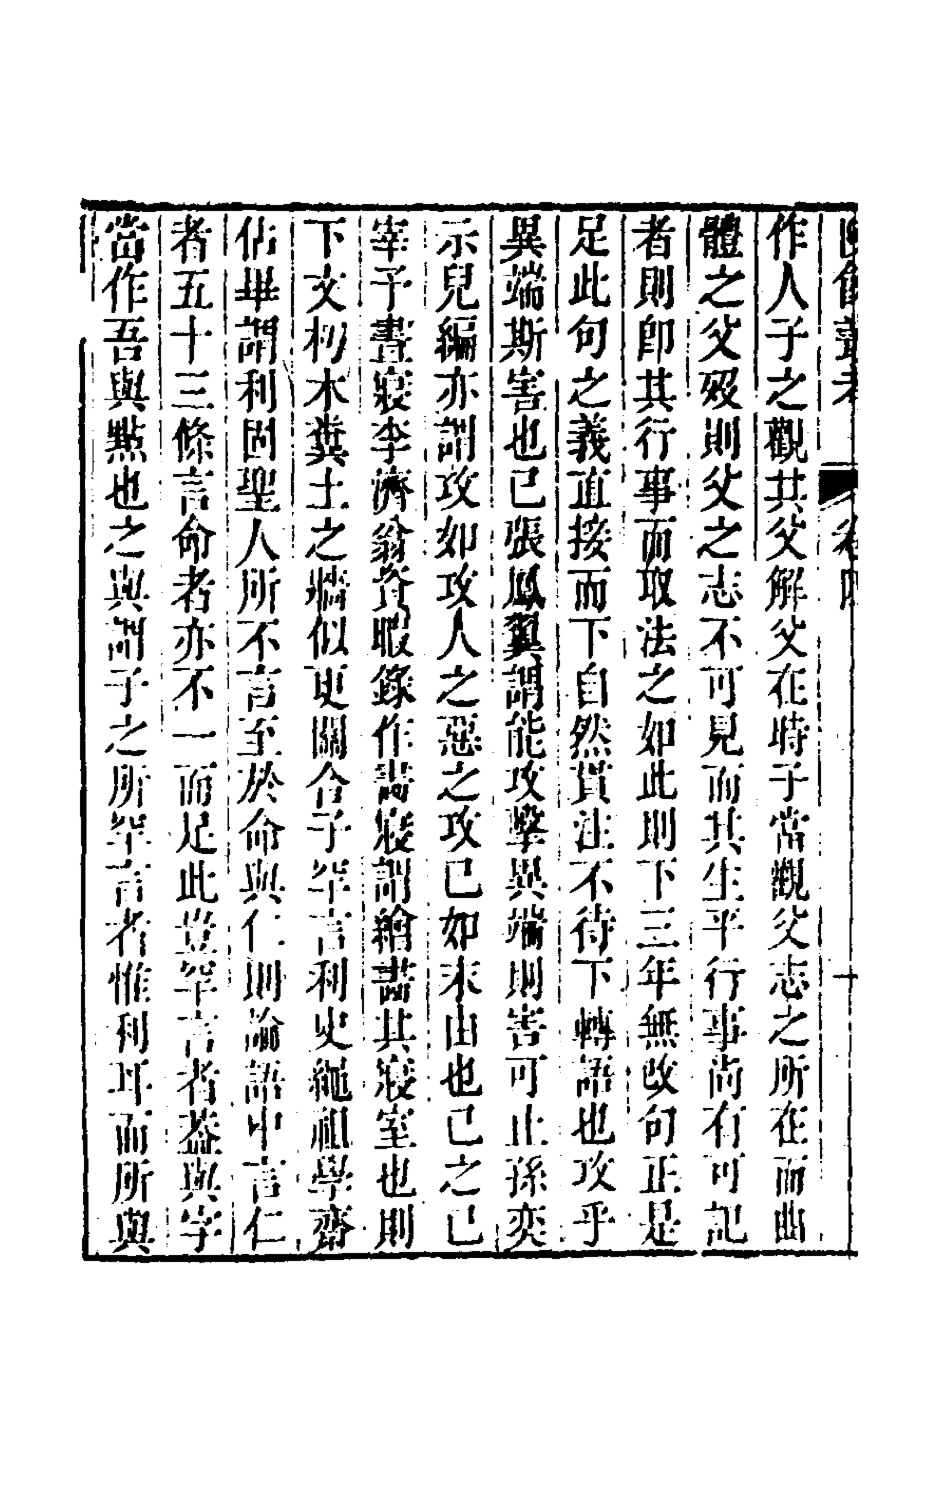 陔餘叢考 卷四 十
作人子之觀其父解父在時子當觀父志之所在而曲
體之父歿則父之志不可見而其生平行事尚有可記
者則即其行事而取法之如此則下三年無改句正是
足此句之義直接而下自然貫注不待下轉語也攻乎
異端斯害也已張鳳翼謂能攻擊異端則害可止孫奕
示兒編亦謂攻如攻人之惡之攻已如末由也已之已
宰予晝寢李濟翁資暇錄作畫寢謂繪畫其寢室也則
下文朽木糞土之牆似更關合子罕言利史繩祖學齋
佔畢謂利固聖人所不言至於命與仁則論語中言仁
者五十三條言命者亦不一而足此豈罕言者蓋與字
當作吾與點也之與謂子之所罕言者惟利耳而所與